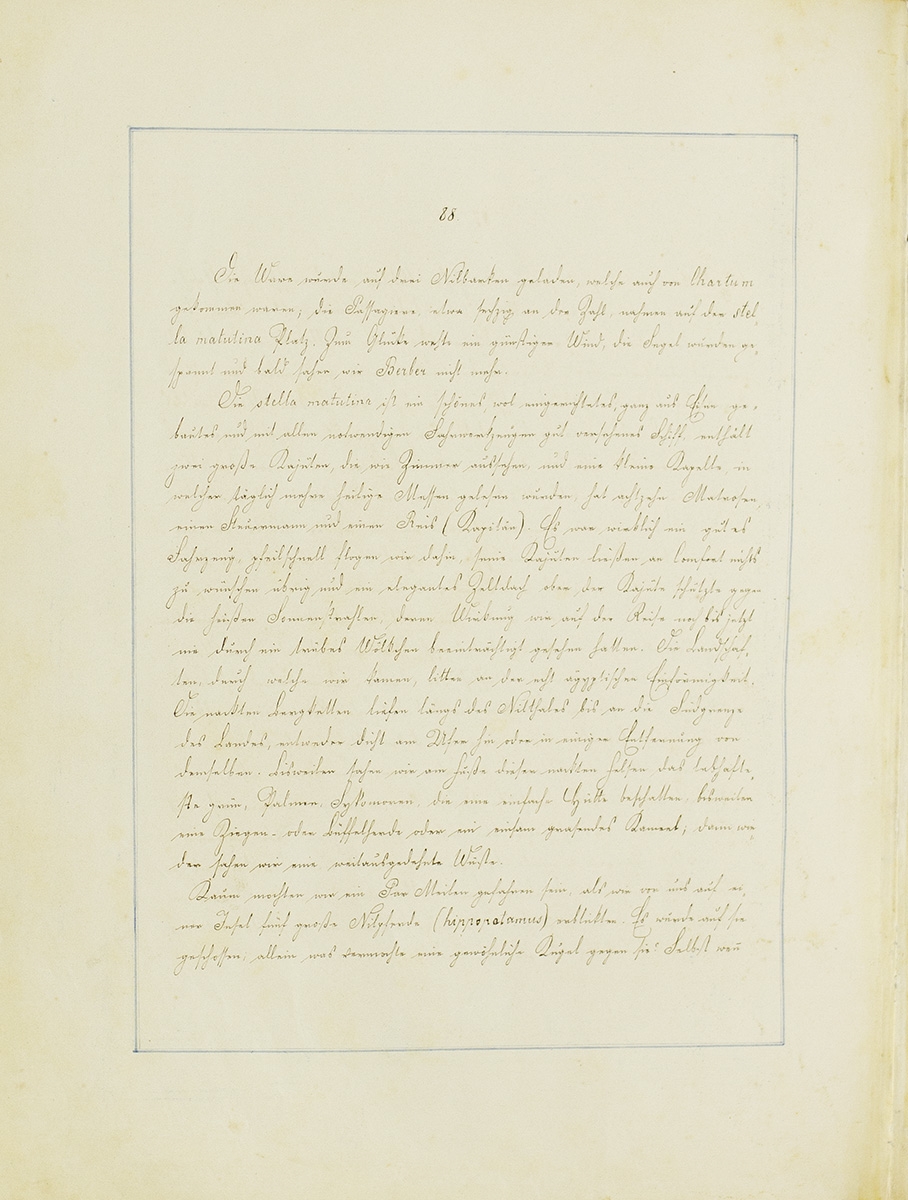 28.
Die Ware wurde auf drei Nilbarken geladen, welche auch von Chartum
gekommen waren; die Passagiere, etwa sechzig an der Zahl, nahmen auf der stel-
la matutina Platz. Zum Glücke wehte ein günstiger Wind, die Segel wurden ge-
spannt und bald sahen wir Berber nicht mehr.
Die stella matutina ist ein schönes, wol eingerichtetes, ganz aus Eisen ge-
bautes und mit allen notwendigen Fahrwerkzeugen gut versehenes Schiff, enthält
zwei große Kajüten, die wie Zimmer aussehen, und eine kleine Kapelle, in
welcher täglich mehre heilige Messen gelesen wurden, hat achtzehn Matrosen,
einen Steuermann und einen Reis (Kapitän). Es war wirklich ein gutes
Fahrzeug, pfeilschnell flogen wir dahin, seine Kajüten ließen an Comfort nichts
zu wünschen übrig und ein elegantes Zeltdach ober der Kajüte schützte gegen
die heißen Sonnenstrahlen, deren Wirkung wir auf der Reise noch bis jetzt
nie durch ein trübes Wölkchen beeinträchtigt gesehen hatten. Die Landschaf-
ten, durch welche wir kamen, litten an der echt ägyptischen Einförmigkeit.
Die nackten Bergketten liefen längs des Nilthales bis an die Südgrenze
des Landes, entweder dicht am Ufer hin oder in einiger Entfernung von
demselben. Bisweilen sahen wir am Fuße dieser nackten Felsen das lebhafte-
ste grün, Palmen, Sykomoren, die eine einfache Hütte beschatten, bisweilen
eine Ziegen- oder Büffelherde oder ein einsam grasendes Kameel; dann wie-
der sahen wir eine weitausgedehnte Wüste.
Kaum mochten wir ein Par Meilen gefahren sein, als wir vor uns auf ei-
ner Insel fünf große Nilpferde (hippopotamus) erblickten. Es wurde auf sie
geschossen, allein was vermochte eine gewöhnliche Kugel gegen sie! Selbst wenn